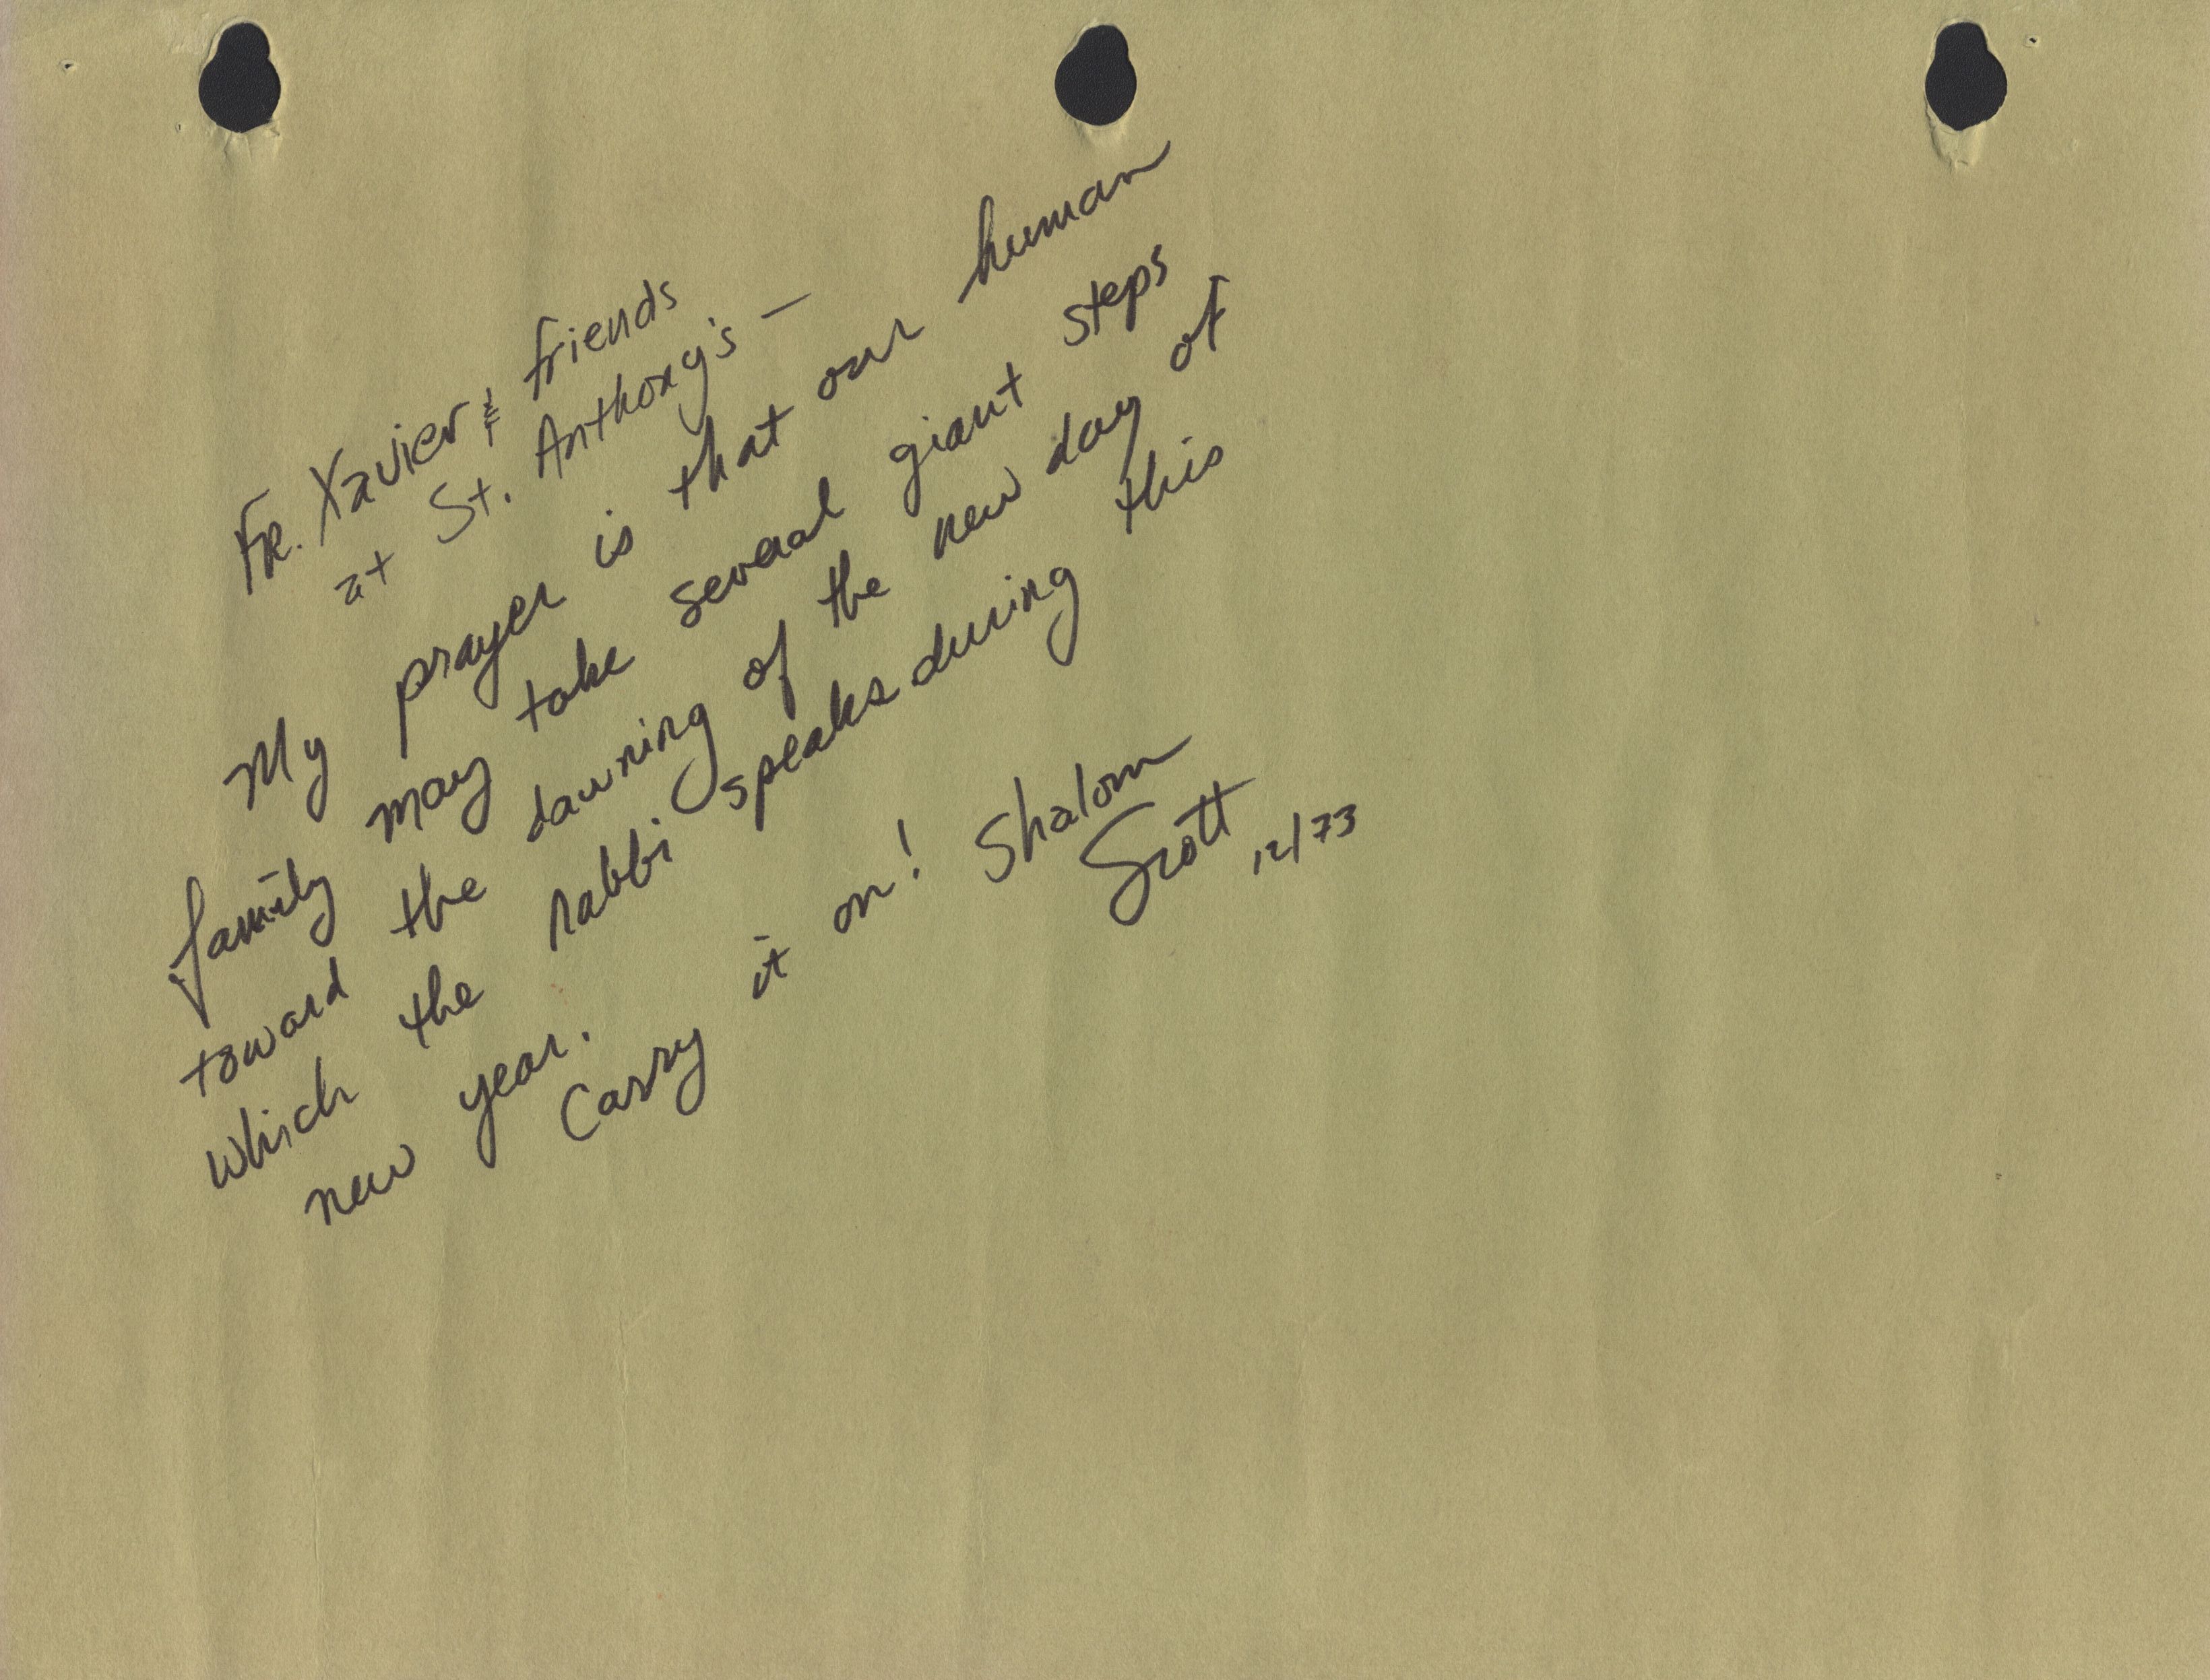 Fr. Xavier & friends
at St. Anthony's —
My prayer is that our human
family may take several giant steps
toward the dawning of the new day of
which the rabbi speaks during this
new year.
Carry it on! Shalom
Scott 12/73